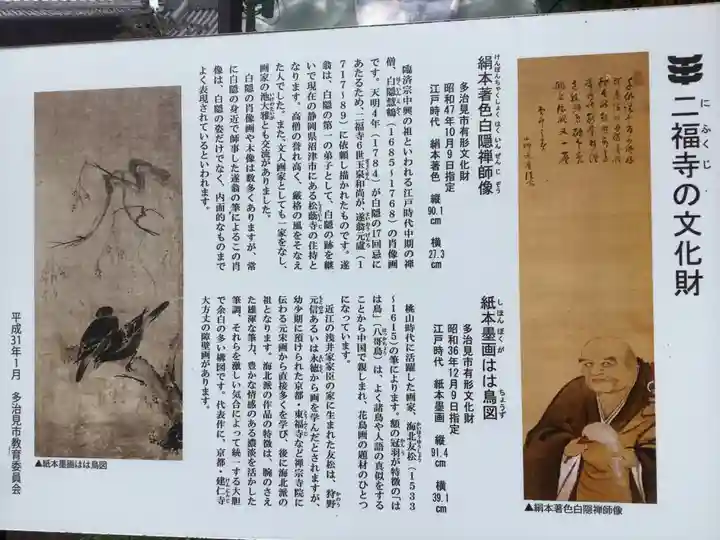 二福寺の文化財
にふくじ
絹本著色白隠禅師像
けんぽんちゃくしょくはくいんぜんじぞう
多治見市有形文化財
昭和47年10月9日指定
江戸時代 絹本著色 縦90.1cm 横27.3cm
臨済宗中興の祖といわれる江戸時代中期の禅
僧、白隠慧鶴(1685~1768)の肖像画
です。天明4年(1784)が白隠の17回忌に
あたるため、二福寺6世玉泉和尚が、遂翁元盧(1
717~89)に依頼し描かれたものです。遂
翁は、白隠の第一の弟子として、白隠の跡を継
いで現在の静岡県沼津市にある松蔭寺の住持と
なります。高僧の誉れ高く、厳格の風をそなえ
た人でした。また、文人画家としても一家をなし、
画家の池大雅とも交流がありました。
白隠の肖像画や木像は数多くありますが、常
に白隠の身近で師事した遂翁の筆によるこの肖
像は、白隠の姿だけでなく、内面的なものまで
よく表現されているといわれます。
紙本墨画はは鳥図
しほんぼくが ちょうず
多治見市有形文化財
昭和36年12月9日指定
江戸時代 紙本墨画 縦91.4cm 横39.1cm
桃山時代に活躍した画家、海北友松(1533
~1615)の筆によります。額の冠羽が特徴の「は
は鳥」(八哥鳥)は、よく諸鳥や人語の真似をする
ことから中国で親しまれ、花鳥画の題材のひとつ
になっています。
近江の浅井家家臣の家に生まれた友松は、狩野
元信あるいは永徳から画を学んだとされますが、
幼少期に預けられた京都・東福寺など禅宗寺院に
伝わる元宋画から直接多くを学び、後に海北派の
祖となります。海北派の作品の特徴は、腕のさえ
た雄渾な筆力、豊かな情感のある濃淡を活かした
筆調、それらを激しい気合によって統一する大胆
で余白の多い構図です。代表作に、京都・建仁寺
大方丈の障壁画があります。
平成31年1月 多治見市教育委員会
▲紙本墨画はは鳥図
▲絹本著色白隠禅師像